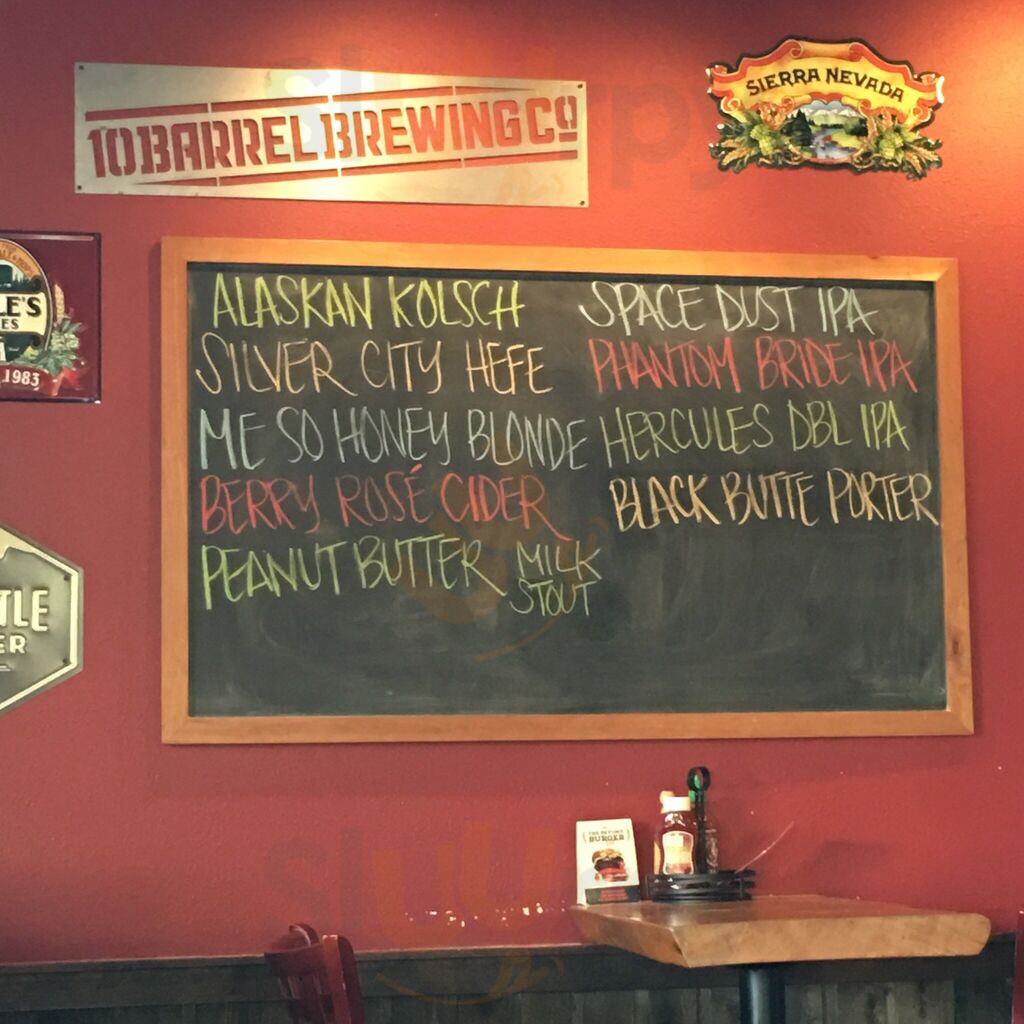 10 BARREL BREWING CO
SIERRA NEVADA
LE'S
ES
1983
TLE
ER
ALASKAN KOLSCH
SILVER CITY HEFE
ME SO HONEY BLONDE
BERRY ROSÉ CIDER
PEANUT BUTTER MILK
STOUT
SPACE DUST IPA
PHANTOM BRIDE IPA
HERCULES DBL IPA
BLACK BUTTE PORTER
THE BEYOND
BURGER